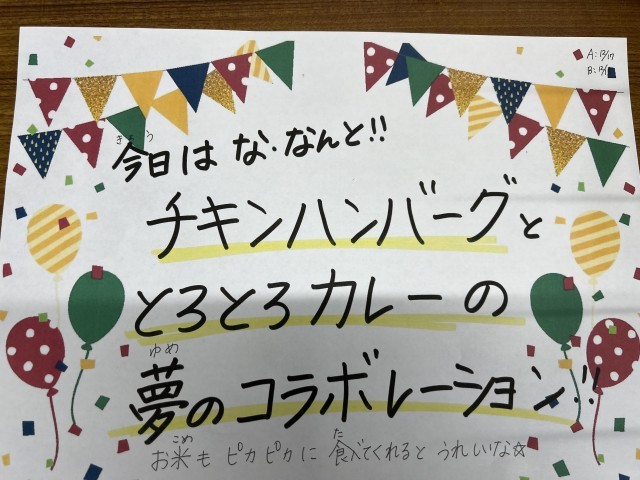 A:12/17
今日は な、なんと!!
チキンハンバーグと
とろとろカレーの
夢のコラボレーション!!
お米も ピカピカに 食べてくれると うれしいな☆